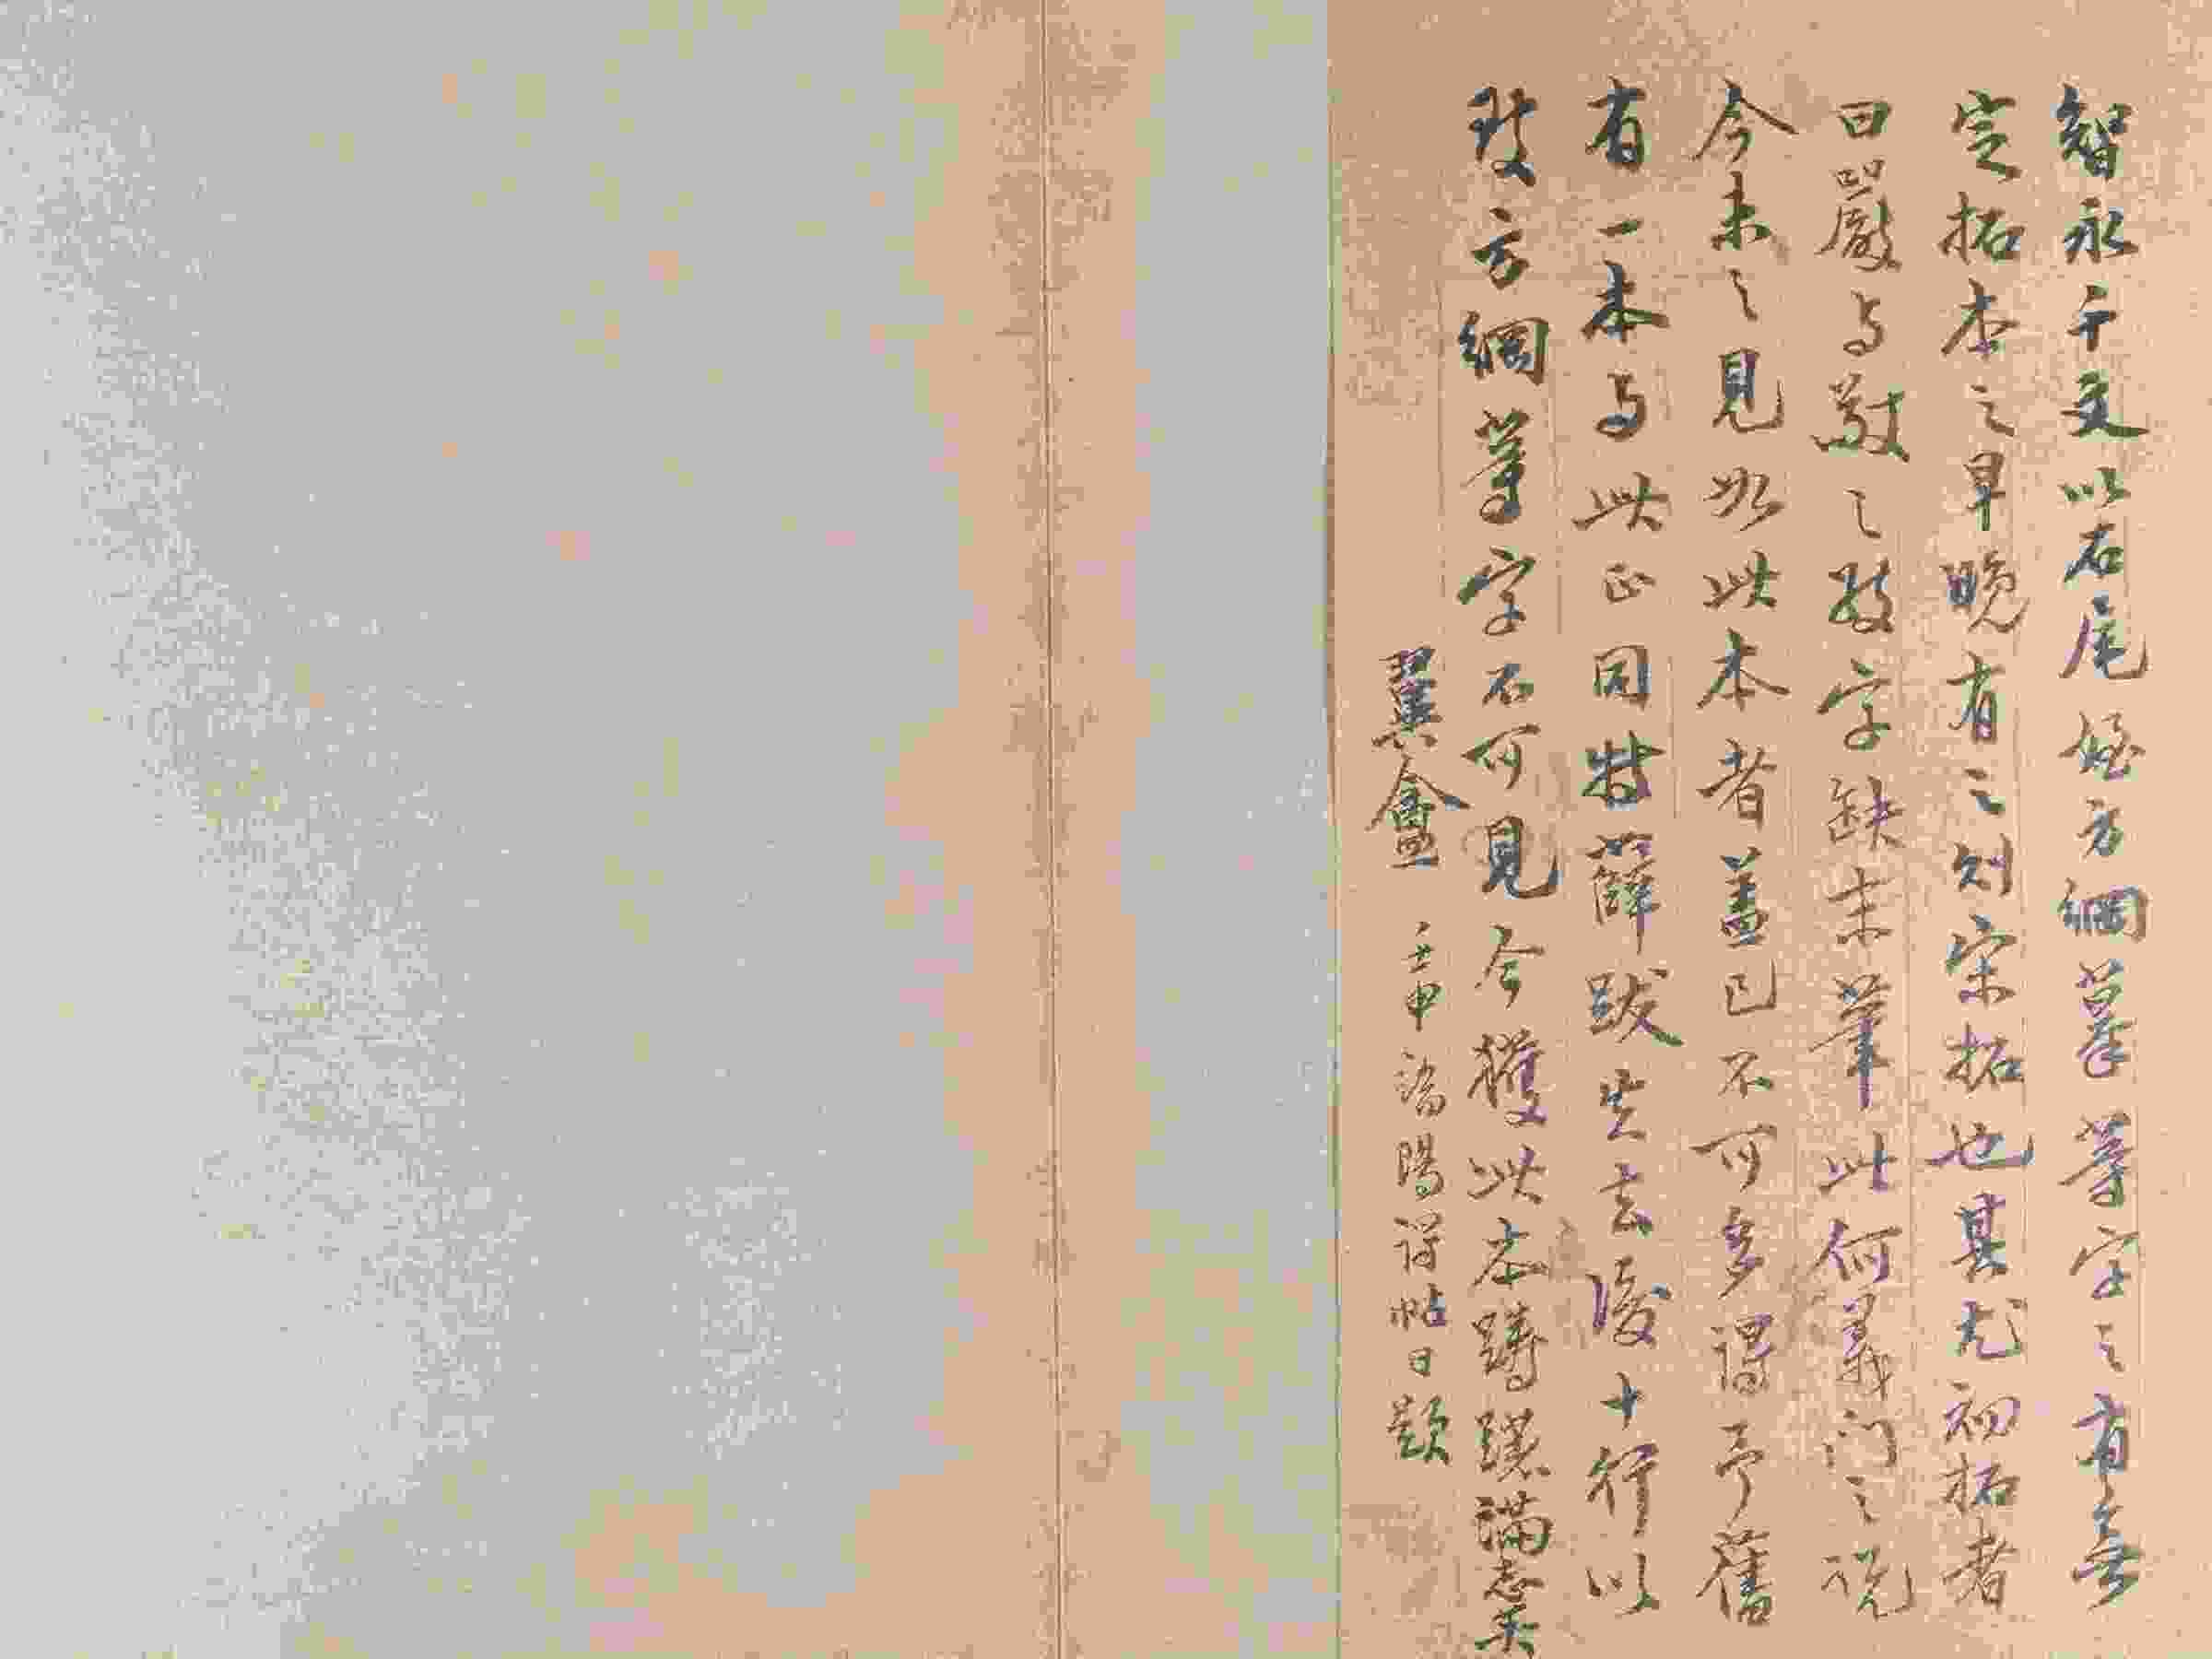 智永千文以石尾姪方綱摹等字之有無
定拓本之早晚有之則宋拓也其尤初拓者
曰嚴与敬之敬字缺末筆此何義門之說
今未之見如此本者蓋已不可多得予舊
有一本与此正同特薛跋失去後十行以
致方綱等字不可見今獲此本躊躇滿志矣
翼盦 壬申陽得帖日題